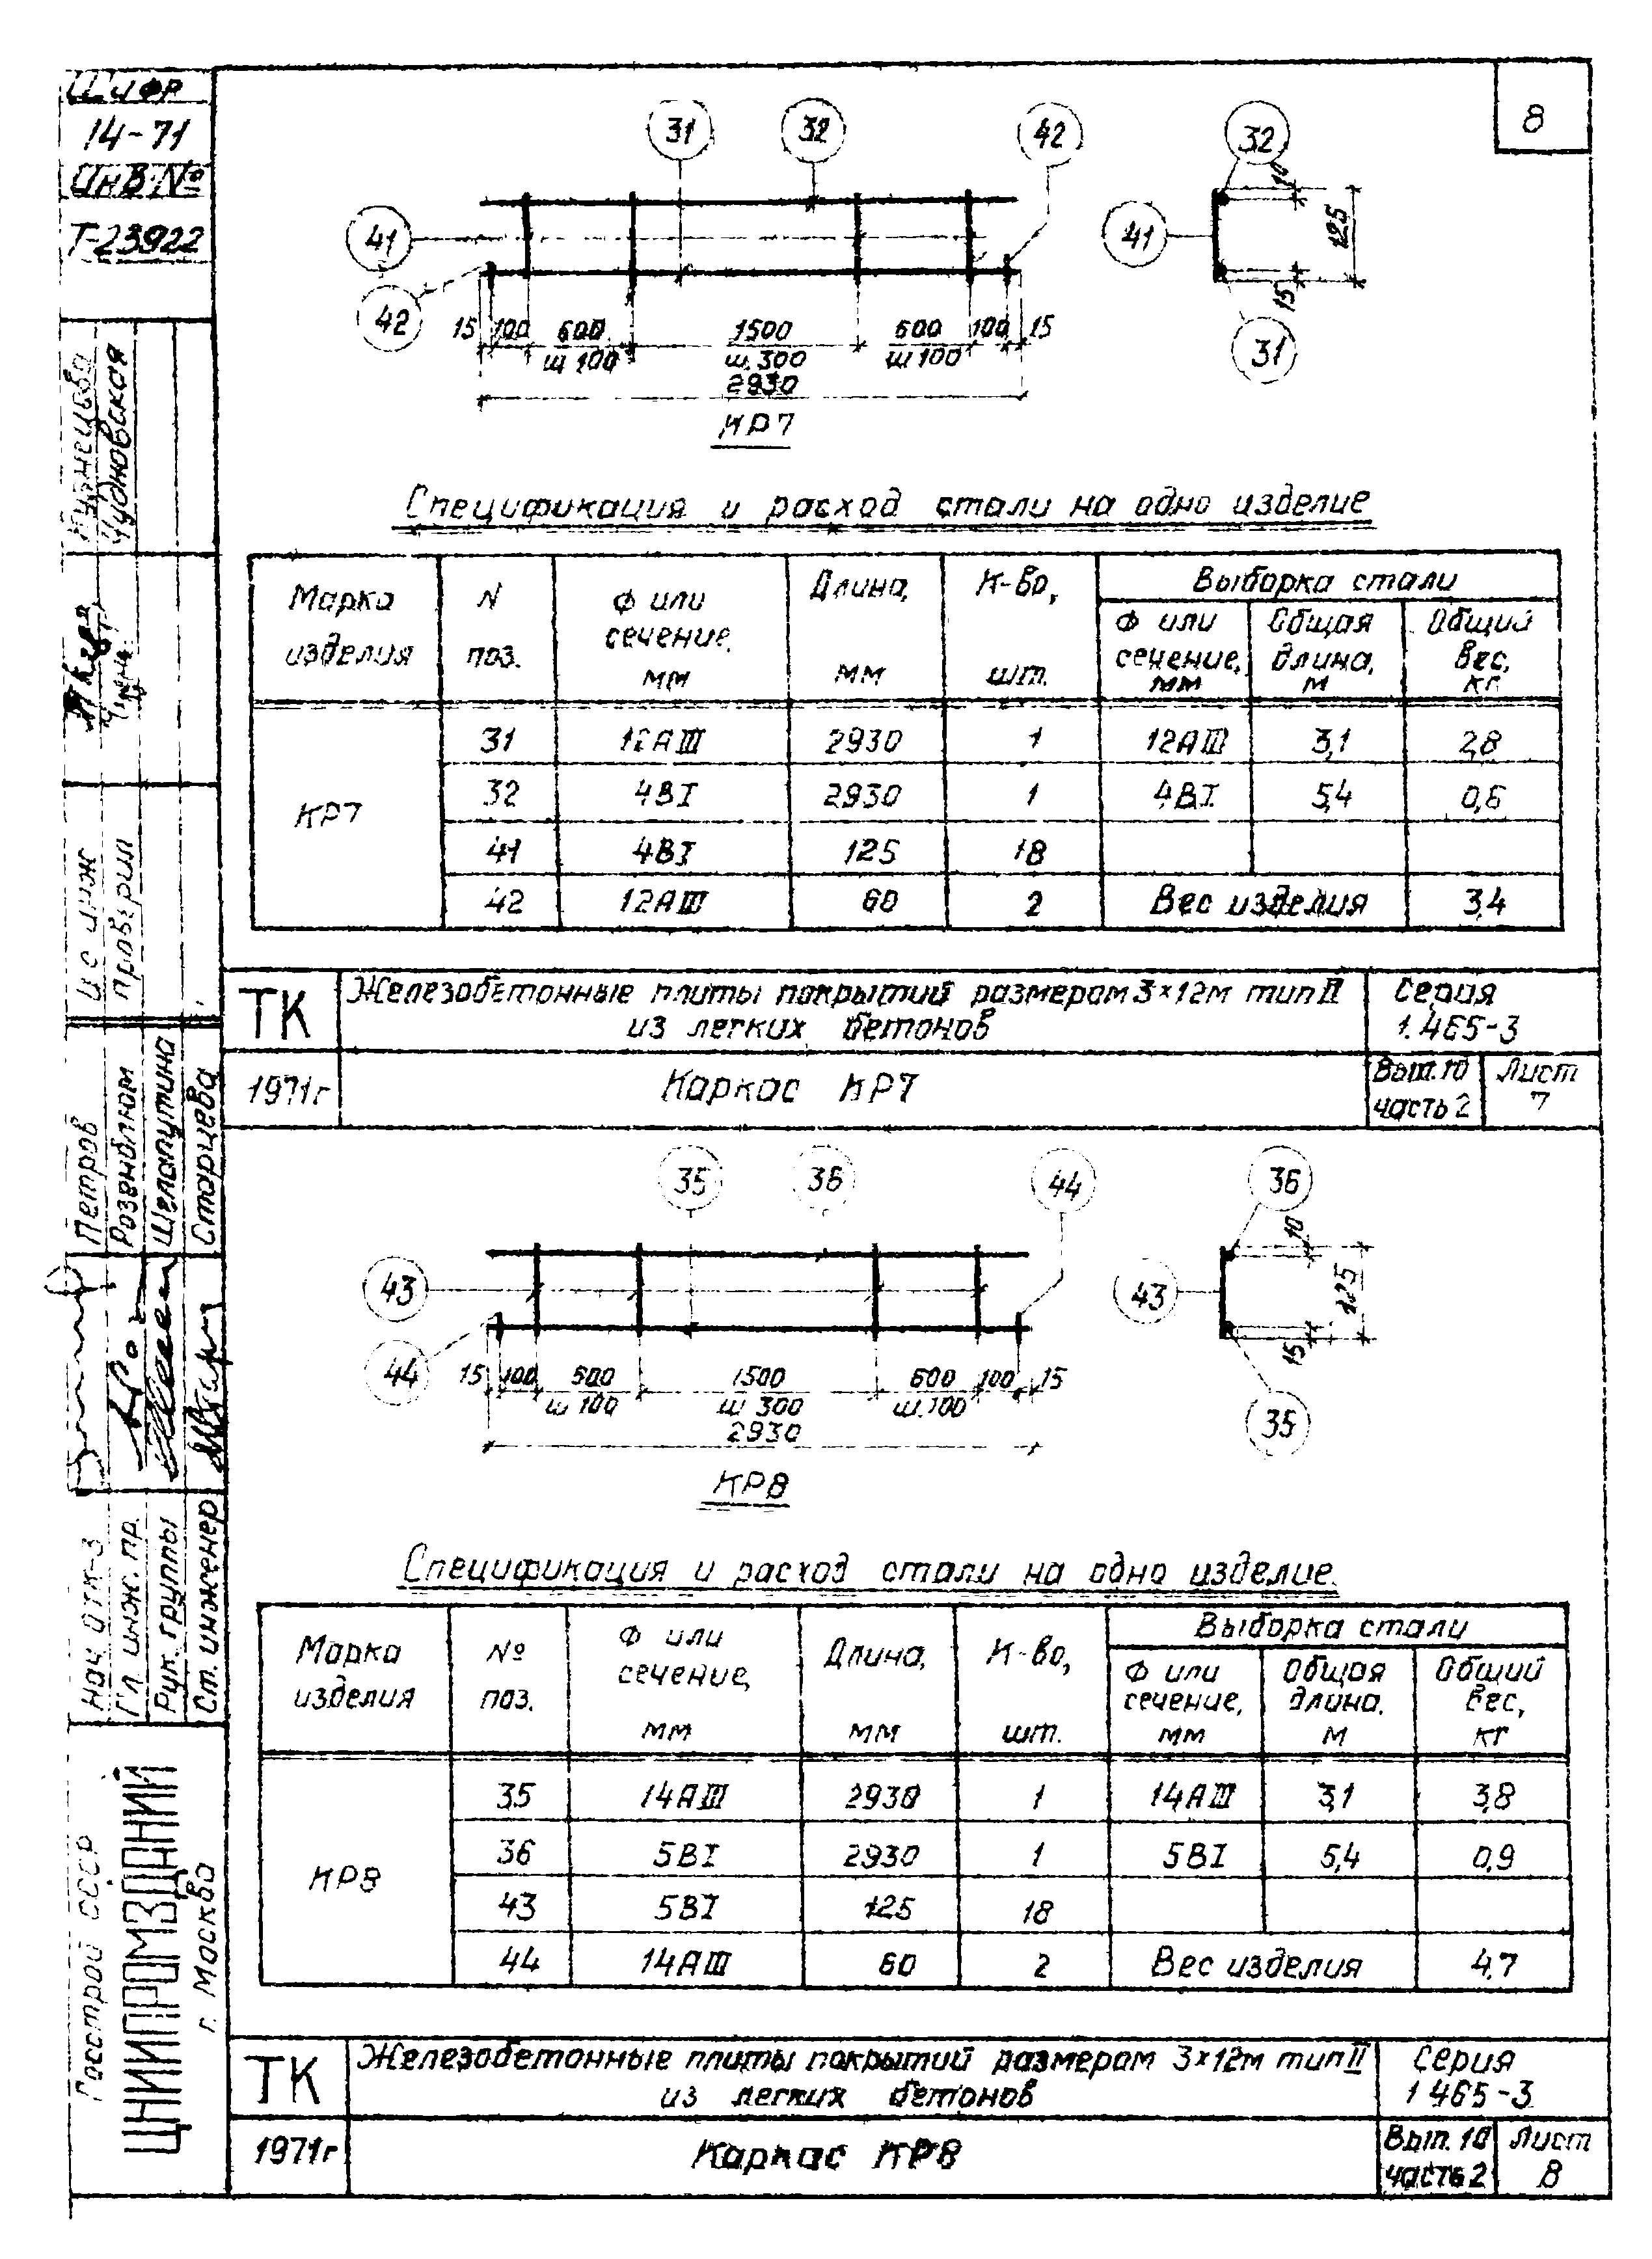 Шифр
14-71
Инв №
Т-23922
8
31
32
42
32
41
42
41
31
10
125
15
15 100 600 1500 600 100 15
ш 100 ш. 300 ш 100
2930
КР7
Спецификация и расход стали на одно изделие
Марка изделия
N поз.
Ф или сечение, мм
Длина, мм
К-во, шт.
Выборка стали
Ф или сечение, мм
Общая длина, м
Общий вес, кг
КР7
31 12АIII 2930 1 12АIII 3,1 2,8
32 4ВI 2930 1 4ВI 5,4 0,6
41 4ВI 125 18
42 12АIII 60 2 Вес изделия 3,4
ТК
Железобетонные плиты покрытий размером 3×12м тип II
из легких бетонов
Серия
1.465-3
1971г
Каркас КР7
Вып. 10
часть 2
Лист
7
35
36
44
36
43
44
43
35
10
125
15
15 100 600 1500 600 100 15
ш 100 ш 300 ш. 100
2930
КР8
Спецификация и расход стали на одно изделие.
Марка изделия
№ поз.
Ф или сечение, мм
Длина, мм
К-во, шт.
Выборка стали
Ф или сечение, мм
Общая длина, м
Общий вес, кг
КР8
35 14АIII 2930 1 14АIII 3,1 3,8
36 5ВI 2930 1 5ВI 5,4 0,9
43 5ВI 125 18
44 14АIII 60 2 Вес изделия 4,7
ТК
Железобетонные плиты покрытий размером 3×12м тип II
из легких бетонов
Серия
1 465-3
1971г
Каркас КР8
Вып. 10
часть 2
Лист
8
Кузнецова
Чудновская
проверил
Петров
Розенблюм
Шелапутина
Старцева
Нач ОТК-3
Гл. инж. пр.
Рук. группы
Ст. инженер
Госстрой СССР
ЦНИИПРОМЗДАНИЙ
г. Москва